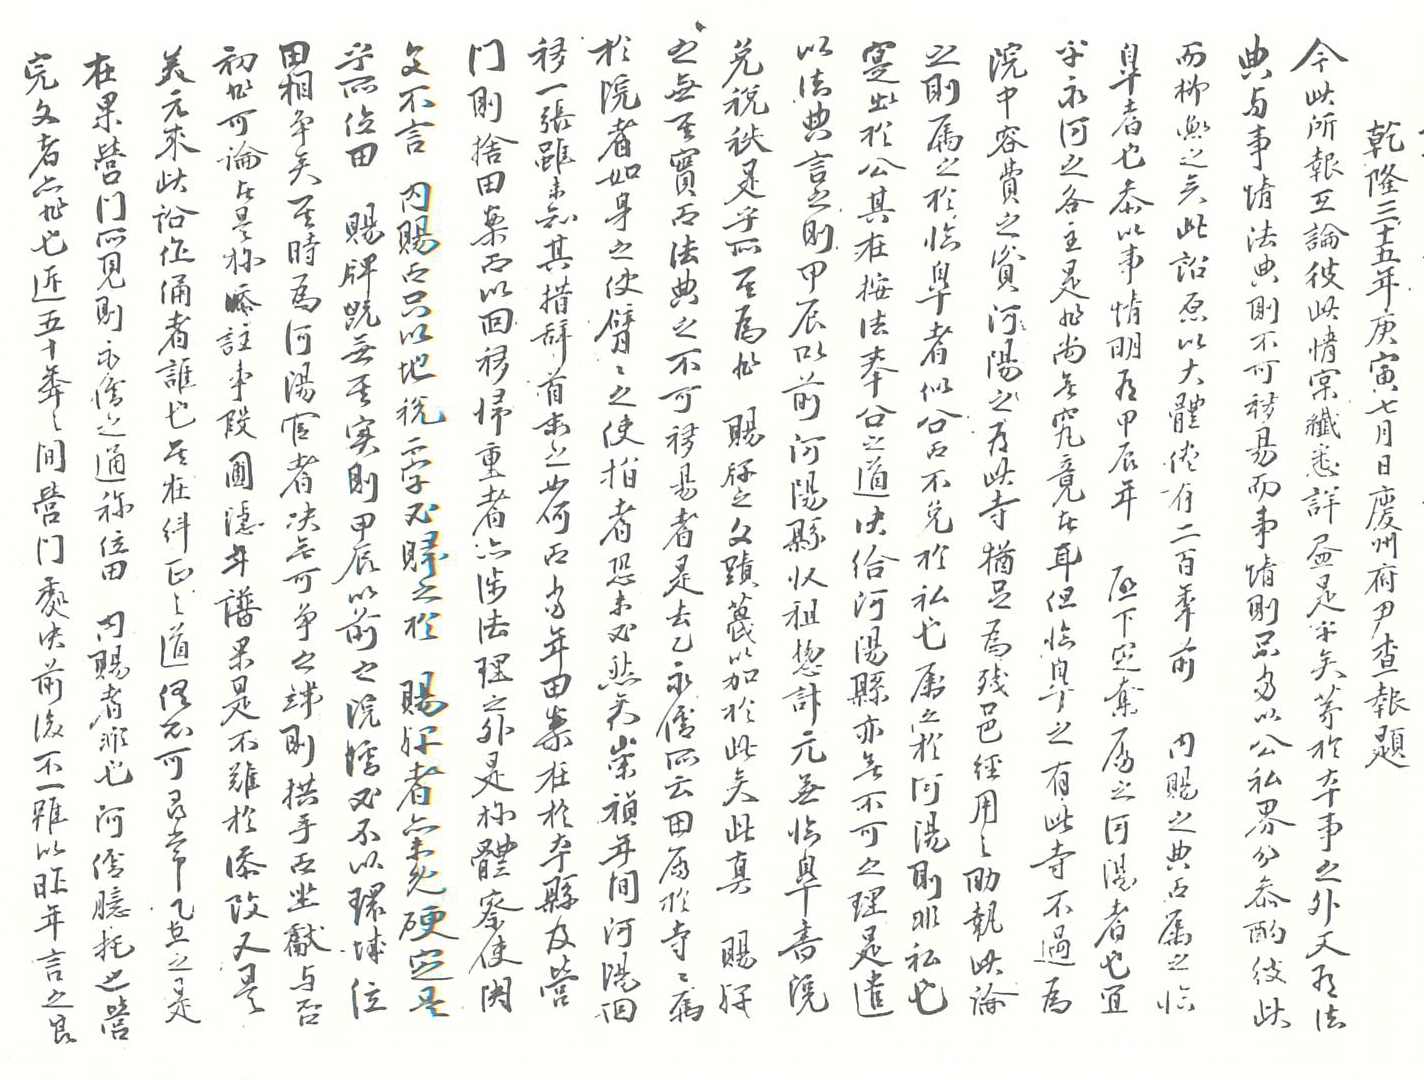 乾隆三十五年庚寅七月日慶州府尹查報題
今此所報互論彼此情實纖悉詳盡是乎矣莠於本事之外又有法
典与事情法典則不可移易而事情則只當以公私界分叅酌彼此
而柳與之矣此訟原以大體侭有二百年前 內賜之典而屬之臨
皐者也叅以事情明有甲辰年 啟下定奪屬之河陽者也宜
乎永河之各主是非尚無究竟在耳但臨皐之有此寺不過為
院中容費之資河陽之有此寺猶足為殘邑經用之助執此論
之則屬之於臨皐者似公而不免於私也屬之於河陽則非私也
寔出於公其在按法奉公之道決給河陽縣亦無不可之理是遣
以法典言之則甲辰以前河陽縣收租摠計元無臨皐書院
免稅秩是乎所至為非 賜牌之文蹟蔑以加於此矣此真 賜牌
之無至實而法典之不可移易者是去乙永儒所云田屬於寺寺屬
於院者如身之使臂臂之使指者恐未必然矣崇禎年間河陽回
移一張雖未知其措辭首末之如何而當年田案在於本縣及營
門則捨田案而以回移歸重者亦涉法理之外是称體察使関
文不言 內賜而只以地稅二字必歸之於 賜牌者亦未免硬定是
乎所位田 賜牌既無至實則甲辰以前之院儒必不以環城位
田相爭矣至時為河陽官者決無可爭之端則拱手而坐獻与否
初非可論在是称添註事段圃隱年譜果是不難於添改又是
美元來此訟作俑者誰也是在糾正之道俱不可尋常乙良之是
在果營門所見則永儒之通称位田 內賜者非也河儒臆托也營
完文者亦非也近五十年年間營門處決前後不一雖以昨年言之良